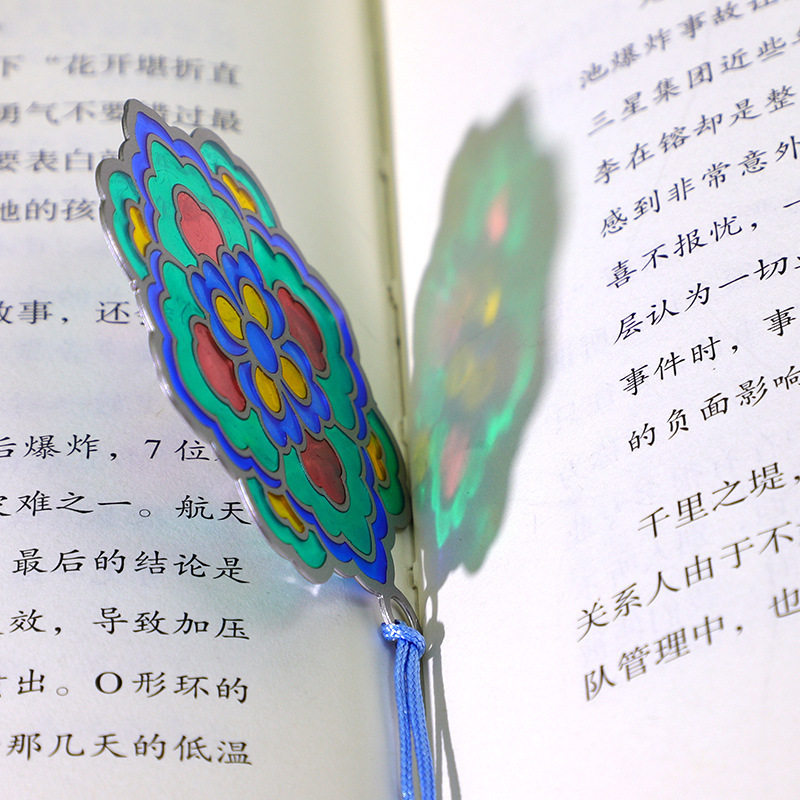 下“花开堪折直
勇气不要错过最
要表白
她的孩
故事，还
后爆炸，7位
灾难之一。航天
最后的结论是
效，导致加压
出。O形环的
那几天的低温
池爆炸事故
三星集团近些
李在镕却是整
感到非常意外
喜不报忧，一
层认为一切
事件时，事
的负面影响
千里之堤，
关系人由于不
队管理中，也